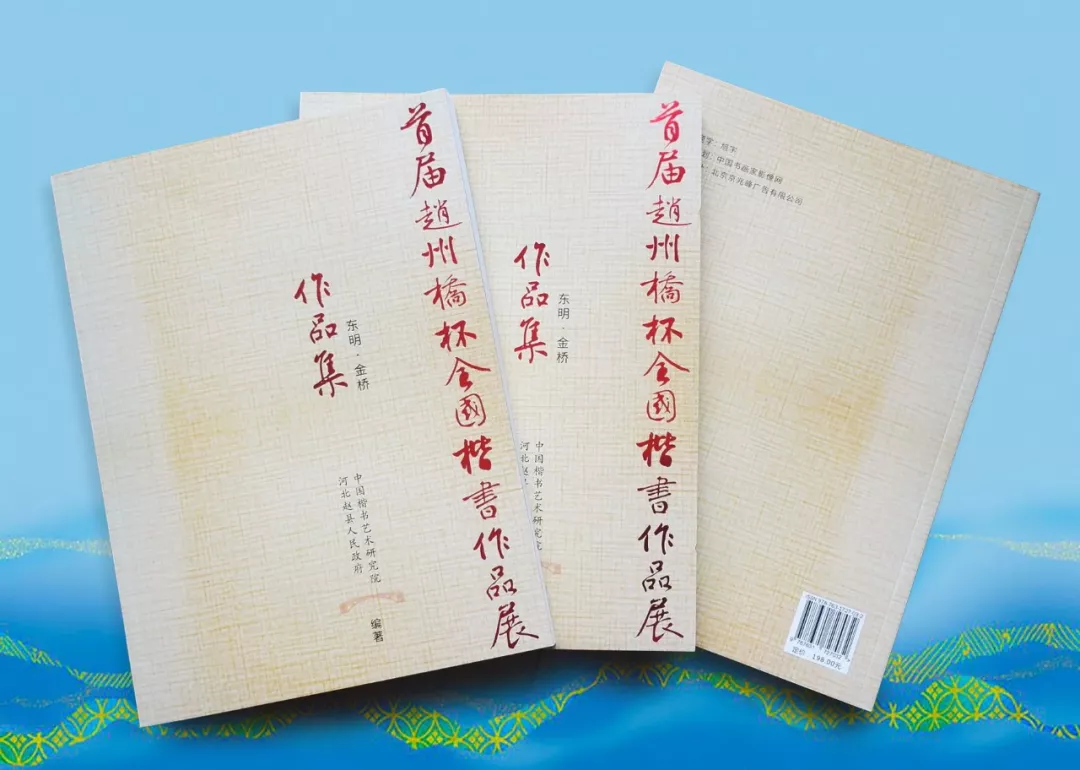 首届趙州橋杯全國楷書作品展
作品集
东明·金桥
中国楷书艺术研究院
河北赵县人民政府
编著
首届趙州橋杯全國楷書作品展
作品集
东明·金桥
中国楷书艺术研究院
河北赵
中国书画家影像网
北京京兆峰广告有限公司
定价 198.00元